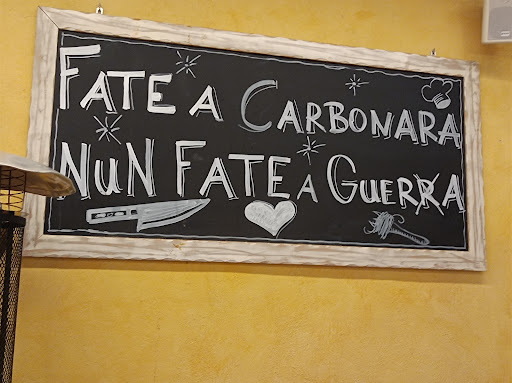 FATE A CARBONARA
NUN FATE A GUERRA